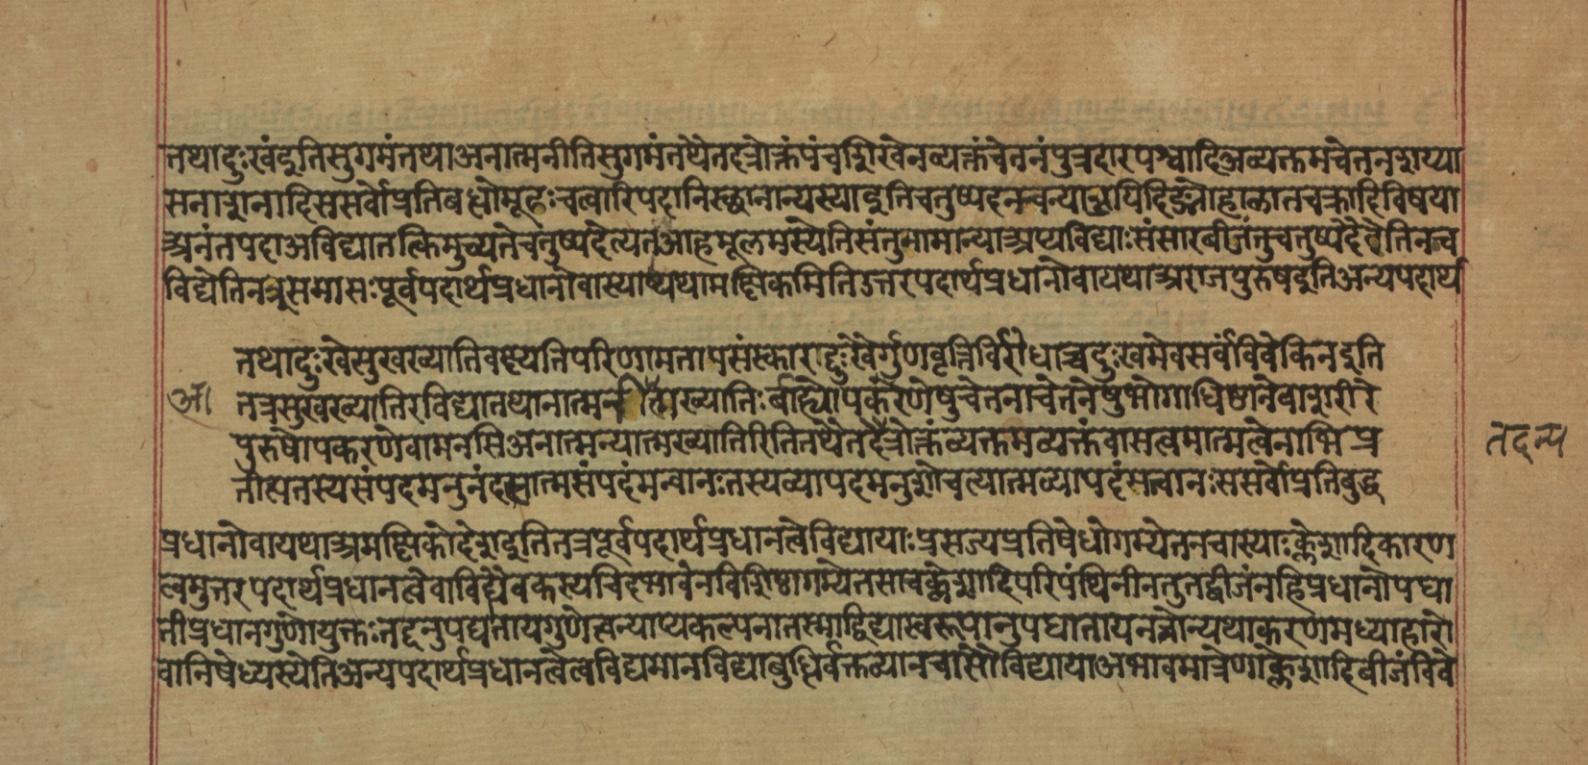 तथादुःखंइतिसुगमंतथाअनात्मनीतिसुगमंतथैतदत्रोक्तंपंचशिखेनव्यक्तंचेतनंपुत्रदारपश्वादिअव्यक्तमचेतनशय्या
सनाशनादिससर्वोप्रतिबधोमूढःचत्वारिपदानिस्छानान्यस्याइतिचतुष्पदनन्वन्याअपिदिङ्मोहालातचक्रादिविषया
अनंतपदाअविद्यातत्किमुच्यतेचतुष्पदेत्यतआहमूलमस्येतिसंतुनामान्याअप्यविद्याःसंसारबीजंतुचतुष्पदैवेतिनन्व
विद्येतिनञ्समासःपूर्वपदार्थप्रधानोवास्याद्यथामक्षिकमितिउत्तरपदार्थप्रधानोवायथाअराजपुरुषइतिअन्यपदार्थ
तथादुःखेसुखख्यातिवक्ष्यतिपरिणामतापसंस्कारदुःखैर्गुणवृत्तिविरोधाच्चदुःखमेवसर्वंविवेकिनइति
तत्रसुखख्यातिरविद्यातथानात्मन्यात्मख्यातिःर्बाह्योपकरणेषुचेतनाचेतनेषुभोगाधिष्ठानेवाशरीरे
पुरुषोपकरणेवामनसिअनात्मन्यात्मख्यातिरितितथैतदत्रोक्तंव्यक्तमव्यक्तंवासत्वमात्मत्वेनाभिप्र
तीत्यतस्यसंपदमनुनंदत्यात्मसंपदंमन्वानःतस्यव्यापदमनुशोचत्यात्मव्यापदंमन्वानःससर्वोप्रतिबुद्ध
तदन्य
प्रधानोवायथाअमक्षिकोदेशइतितत्रपूर्वपदार्थप्रधानत्वेविद्यायाःप्रसज्यप्रतिषेधोगम्येतनचास्याःक्लेशादिकारण
त्वमुत्तरपदार्थप्रधानत्वेवाविद्यैवकस्यचिदभावेनविशिष्ठागम्येतसाचक्लेशादिपरिपंथिनीनतुतद्बीजंनहिप्रधानोपघा
तीप्रधानगुणोयुक्तःतद्दनुपघातायगुणेत्वन्याप्यकल्पनातस्माद्विद्यास्वरूपानुपघातायनञोन्यथाकरणमध्याहारो
वानिषेध्यस्येतिअन्यपदार्थप्रधानत्वेत्वविद्यमानविद्याबुधिर्वक्तव्यानचासौविद्यायाअभावमात्रेणक्लेशादिबीजंविवे